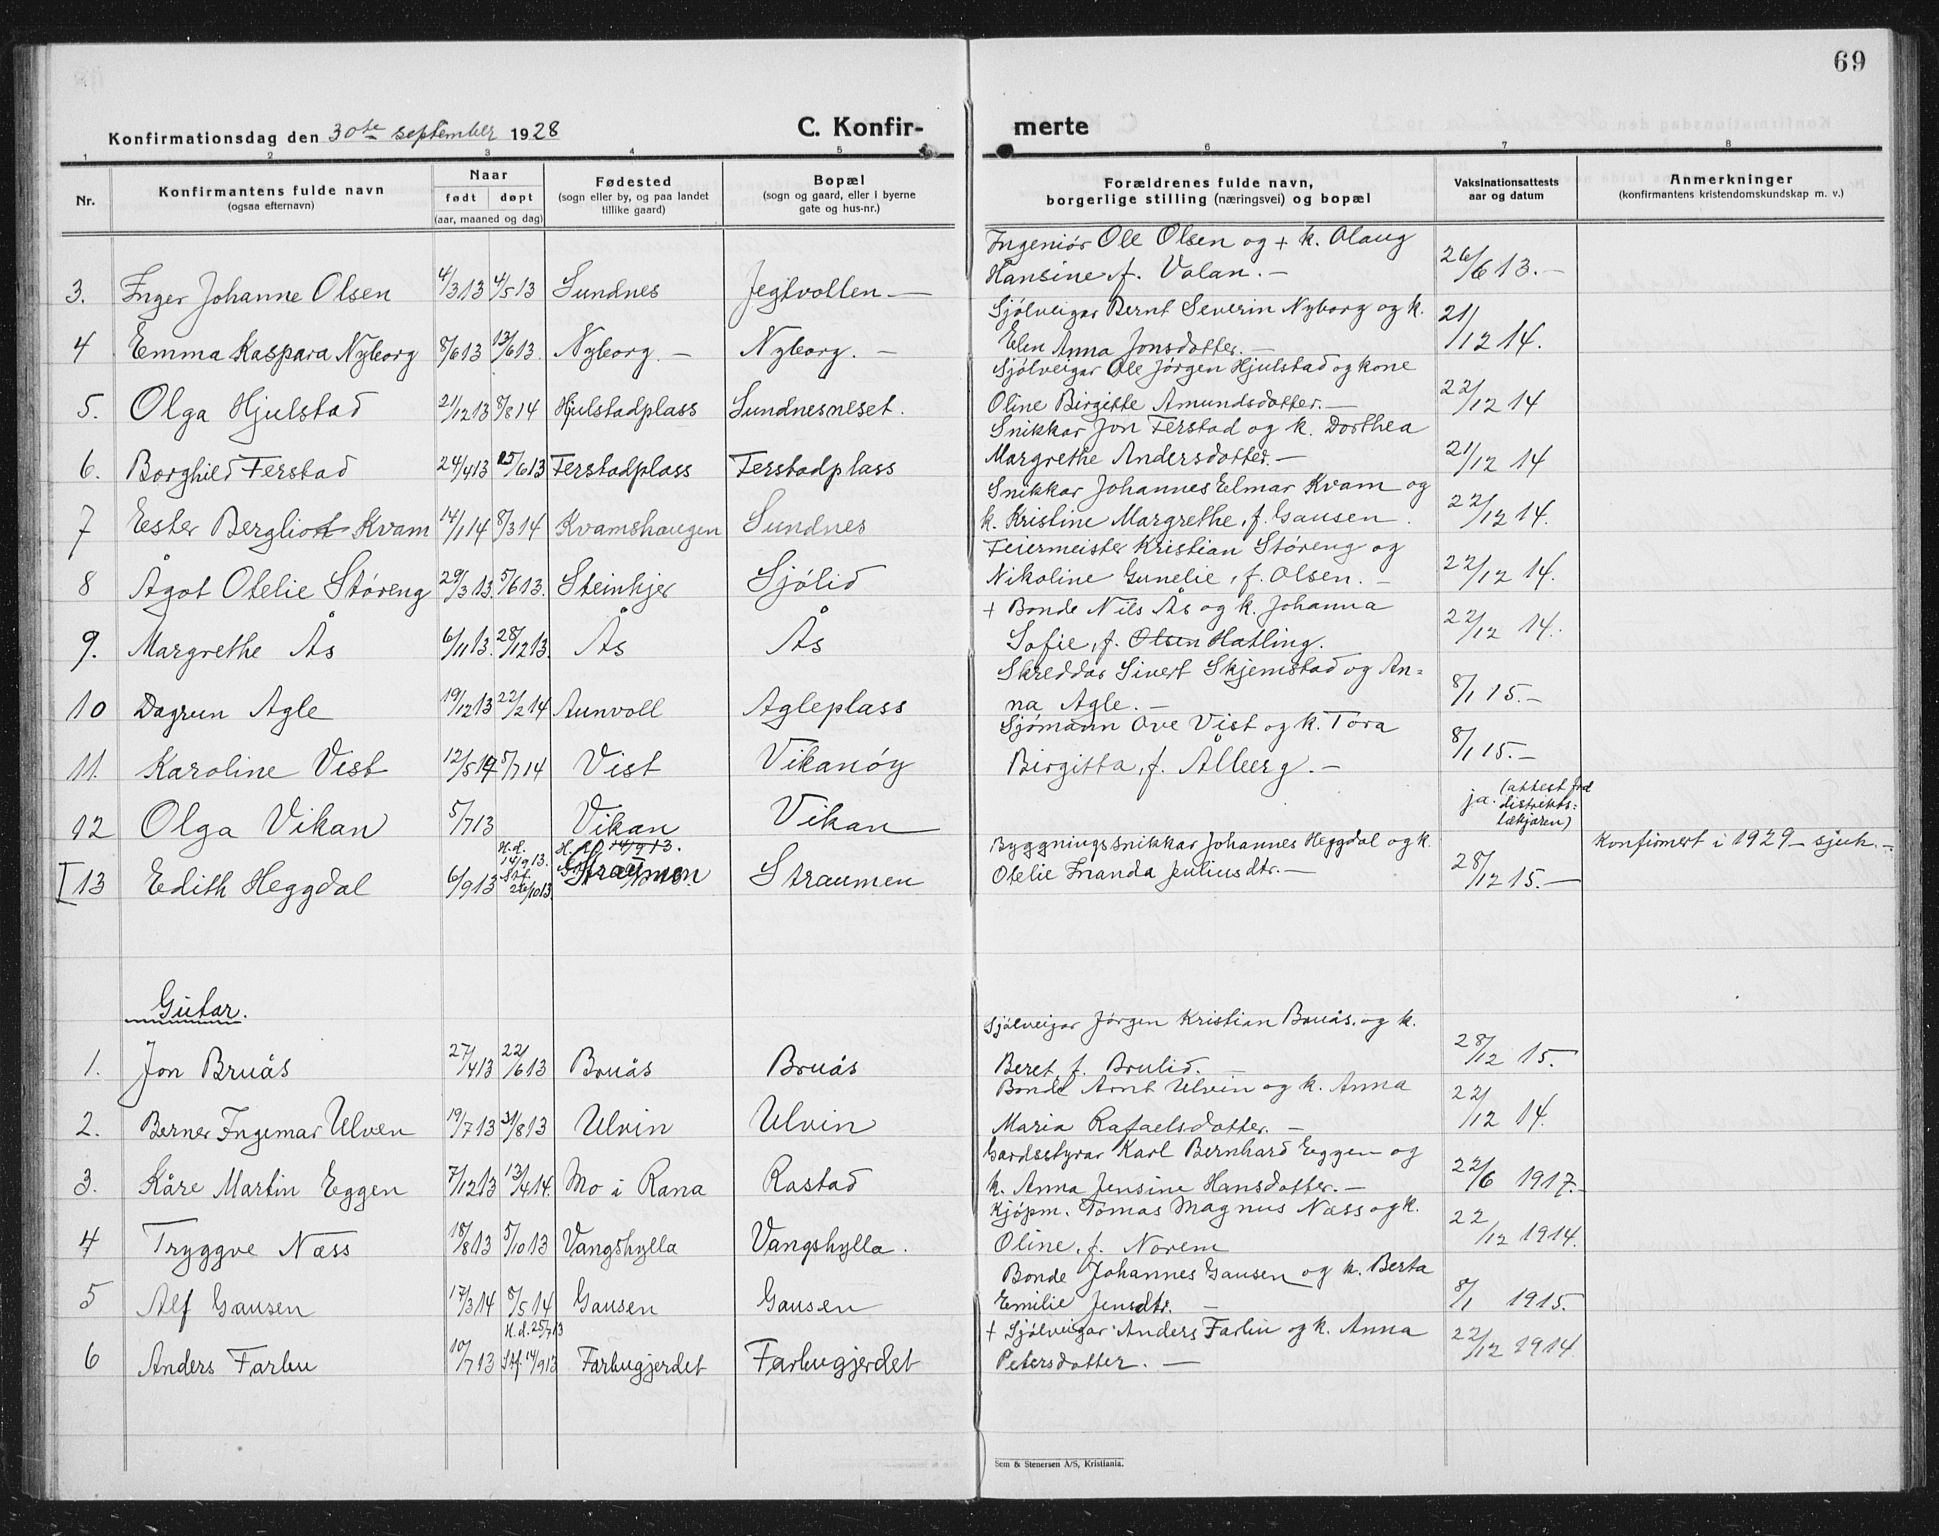 69
Konfirmationsdag den 30te september 1928 C. Konfir- merte
1 2 3 4 5 6 7 8
Nr. Konfirmantens fulde navn (ogsaa efternavn) Naar født døpt (aar, maaned og dag) Fødested (sogn eller by, og paa landet tillike gaard) Bopæl (sogn og gaard, eller i byerne gate og hus-nr.) Forældrenes fulde navn, borgerlige stilling (næringsvei) og bopæl Vaksinationsattests aar og datum Anmerkninger (konfirmantens kristendomskundskap m. v.)
Ingeniør Ole Olsen og + k. Olaug
3. Inger Johanne Olsen 4/3 13 4/5 13 Sundnes Jegtvollen — Hansine, f. Valan. — 26/6 13. —
Sjølveigar Bernt Severin Nyborg og k.
4 Emma Kaspara Nyborg 8/6 13 13/6 13. Nyborg. — Nyborg. — Elen Anna Jonsdotter. — 21/12 14.
Sjølveigar Ole Jørgen Hjulstad og kone
5. Olga Hjulstad 21/12 13 8/8 14 Hjulstadplass Sundnesneset. Oline Birgitte Amundsdotter. — 22/12 14
Snikkar Jon Ferstad og k. Dorthea
6. Borghild Ferstad 24/4 13 15/6 13 Ferstadplass Ferstadplass Margrethe Andersdotter. — 21/12 14
Snikkar Johannes Elmar Kvam og
7 Ester Bergliot Kvam 14/1 14 8/3 14 Kvamshaugen Sundnes k. Kristine Margrethe, f. Gausen. 22/12 14.
Feiermeister Kristian Støreng og
8 Ågot Otelie Støreng 29/3 13. 5/6 13. Steinkjer Sjølid Nikoline Gunelie, f. Olsen. — 22/12 14.
+ Bonde Nils Ås og k. Johanna
9. Margrethe Ås 6/11 13. 28/12 13. Ås Ås Sofie, f. Olsen Hatling. 22/12 14.
Skreddar Sivert Skjemstad og An=
10 Dagrun Agle 19/12 13 22/2 14 Aunvoll Agleplass na Agle. — 8/1 15. —
Sjømann Ove Vist og k. Tora
11. Karoline Vist 12/5 14 5/7 14 Vist Vikanøy Birgitta, f. Ålberg. — 8/1 15. —
12 Olga Vikan 5/7 13 Vikan Vikan ja. (attest frå distrikts= lækjaren)
H. d. 14/9 13. Byggningssnikkar Johannes Heggdal og k. Konfirmert i 1929 — sjuk. —
[13 Edith Heggdal 6/9 13 H.d. 14/9 13. Stf. 26/10 13. Straumen Straumen Otelie Inanda Juliusdtr. — 28/12 15. —
Gutar.
Sjølveigar Jørgen Kristian Bruås. og k.
1. Jon Bruås 27/4 13 22/6 13 Bruås Bruås Beret, f. Brulid. — 28/12 15.
Bonde Arnt Ulvin og k. Anna
2. Berner Ingemar Ulven 19/7 13 31/8 13 Ulvin Ulvin Maria Rafaelsdotter. — 22/12 14.
Gardsstyrar Karl Bernhard Eggen og
3. Kåre Martin Eggen 7/12 13 13/4 14. Mo i Rana Rostad k. Anna Jensine Hansdotter. — 22/6 1917. —
Kjøpm. Tomas Magnus Næss og k.
4 Tryggve Næss 18/8 13 5/10 13 Vangshylla Vangshylla. Oline, f. Norem 22/12 1914.
Bonde Johannes Gausen og k. Berta
5 Alf Gausen 17/3 14 8/5 14 Gausen Gausen Emilie Jensdtr. — 8/1 1915.
H. d. 25/7 13 + Sjølveigar Anders Farbu og k. Anna
6 Anders Farbu 10/7 13 Stf. 14/9 13 Farbugjerdet Farbugjerdet Petersdotter. — 22/12 1914
Sem & Stenersen A/S, Kristiania.